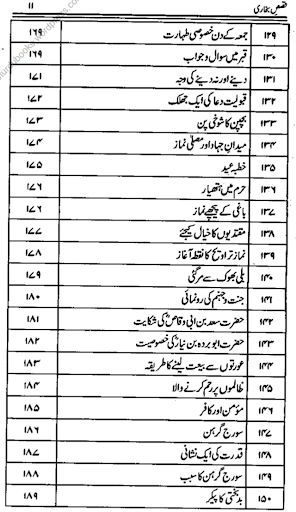 قصص بخاری ۱۱
۱۲۹ جمعہ کے دن خصوصی طہارت ۱۶۹
۱۳۰ قبر میں سوال و جواب ۱۶۹
۱۳۱ دینے اور نہ دینے کی وجہ ۱۷۱
۱۳۲ قبولیت دعا کی ایک جھلک ۱۷۲
۱۳۳ بچپن کا شوخی پن ۱۷۳
۱۳۴ میدانِ جہاد اور مصلیٰ نماز ۱۷۴
۱۳۵ خطبہ عید ۱۷۵
۱۳۶ حرم میں ہتھیار ۱۷۶
۱۳۷ باغی کے پیچھے نماز ۱۷۶
۱۳۸ مقتدیوں کا خیال کیجئے ۱۷۷
۱۳۹ نماز تراویح کا نقطۂ آغاز ۱۷۸
۱۴۰ بلی بھوک سے مر گئی ۱۷۹
۱۴۱ جنت و جہنم کی رونمائی ۱۸۰
۱۴۲ حضرت سعد بن ابی وقاصؓ کی شکایت ۱۸۱
۱۴۳ حضرت ابو بردہ بن نیارؓ کی خصوصیت ۱۸۲
۱۴۴ عورتوں سے بیعت لینے کا طریقہ ۱۸۳
۱۴۵ ظالموں پر رحم کرنے والا ۱۸۴
۱۴۶ مؤمن اور کافر ۱۸۵
۱۴۷ سورج گرہن ۱۸۶
۱۴۸ قدرت کی ایک نشانی ۱۸۷
۱۴۹ سورج گرہن کا سبب ۱۸۸
۱۵۰ بدبختی کا پیکر ۱۸۹